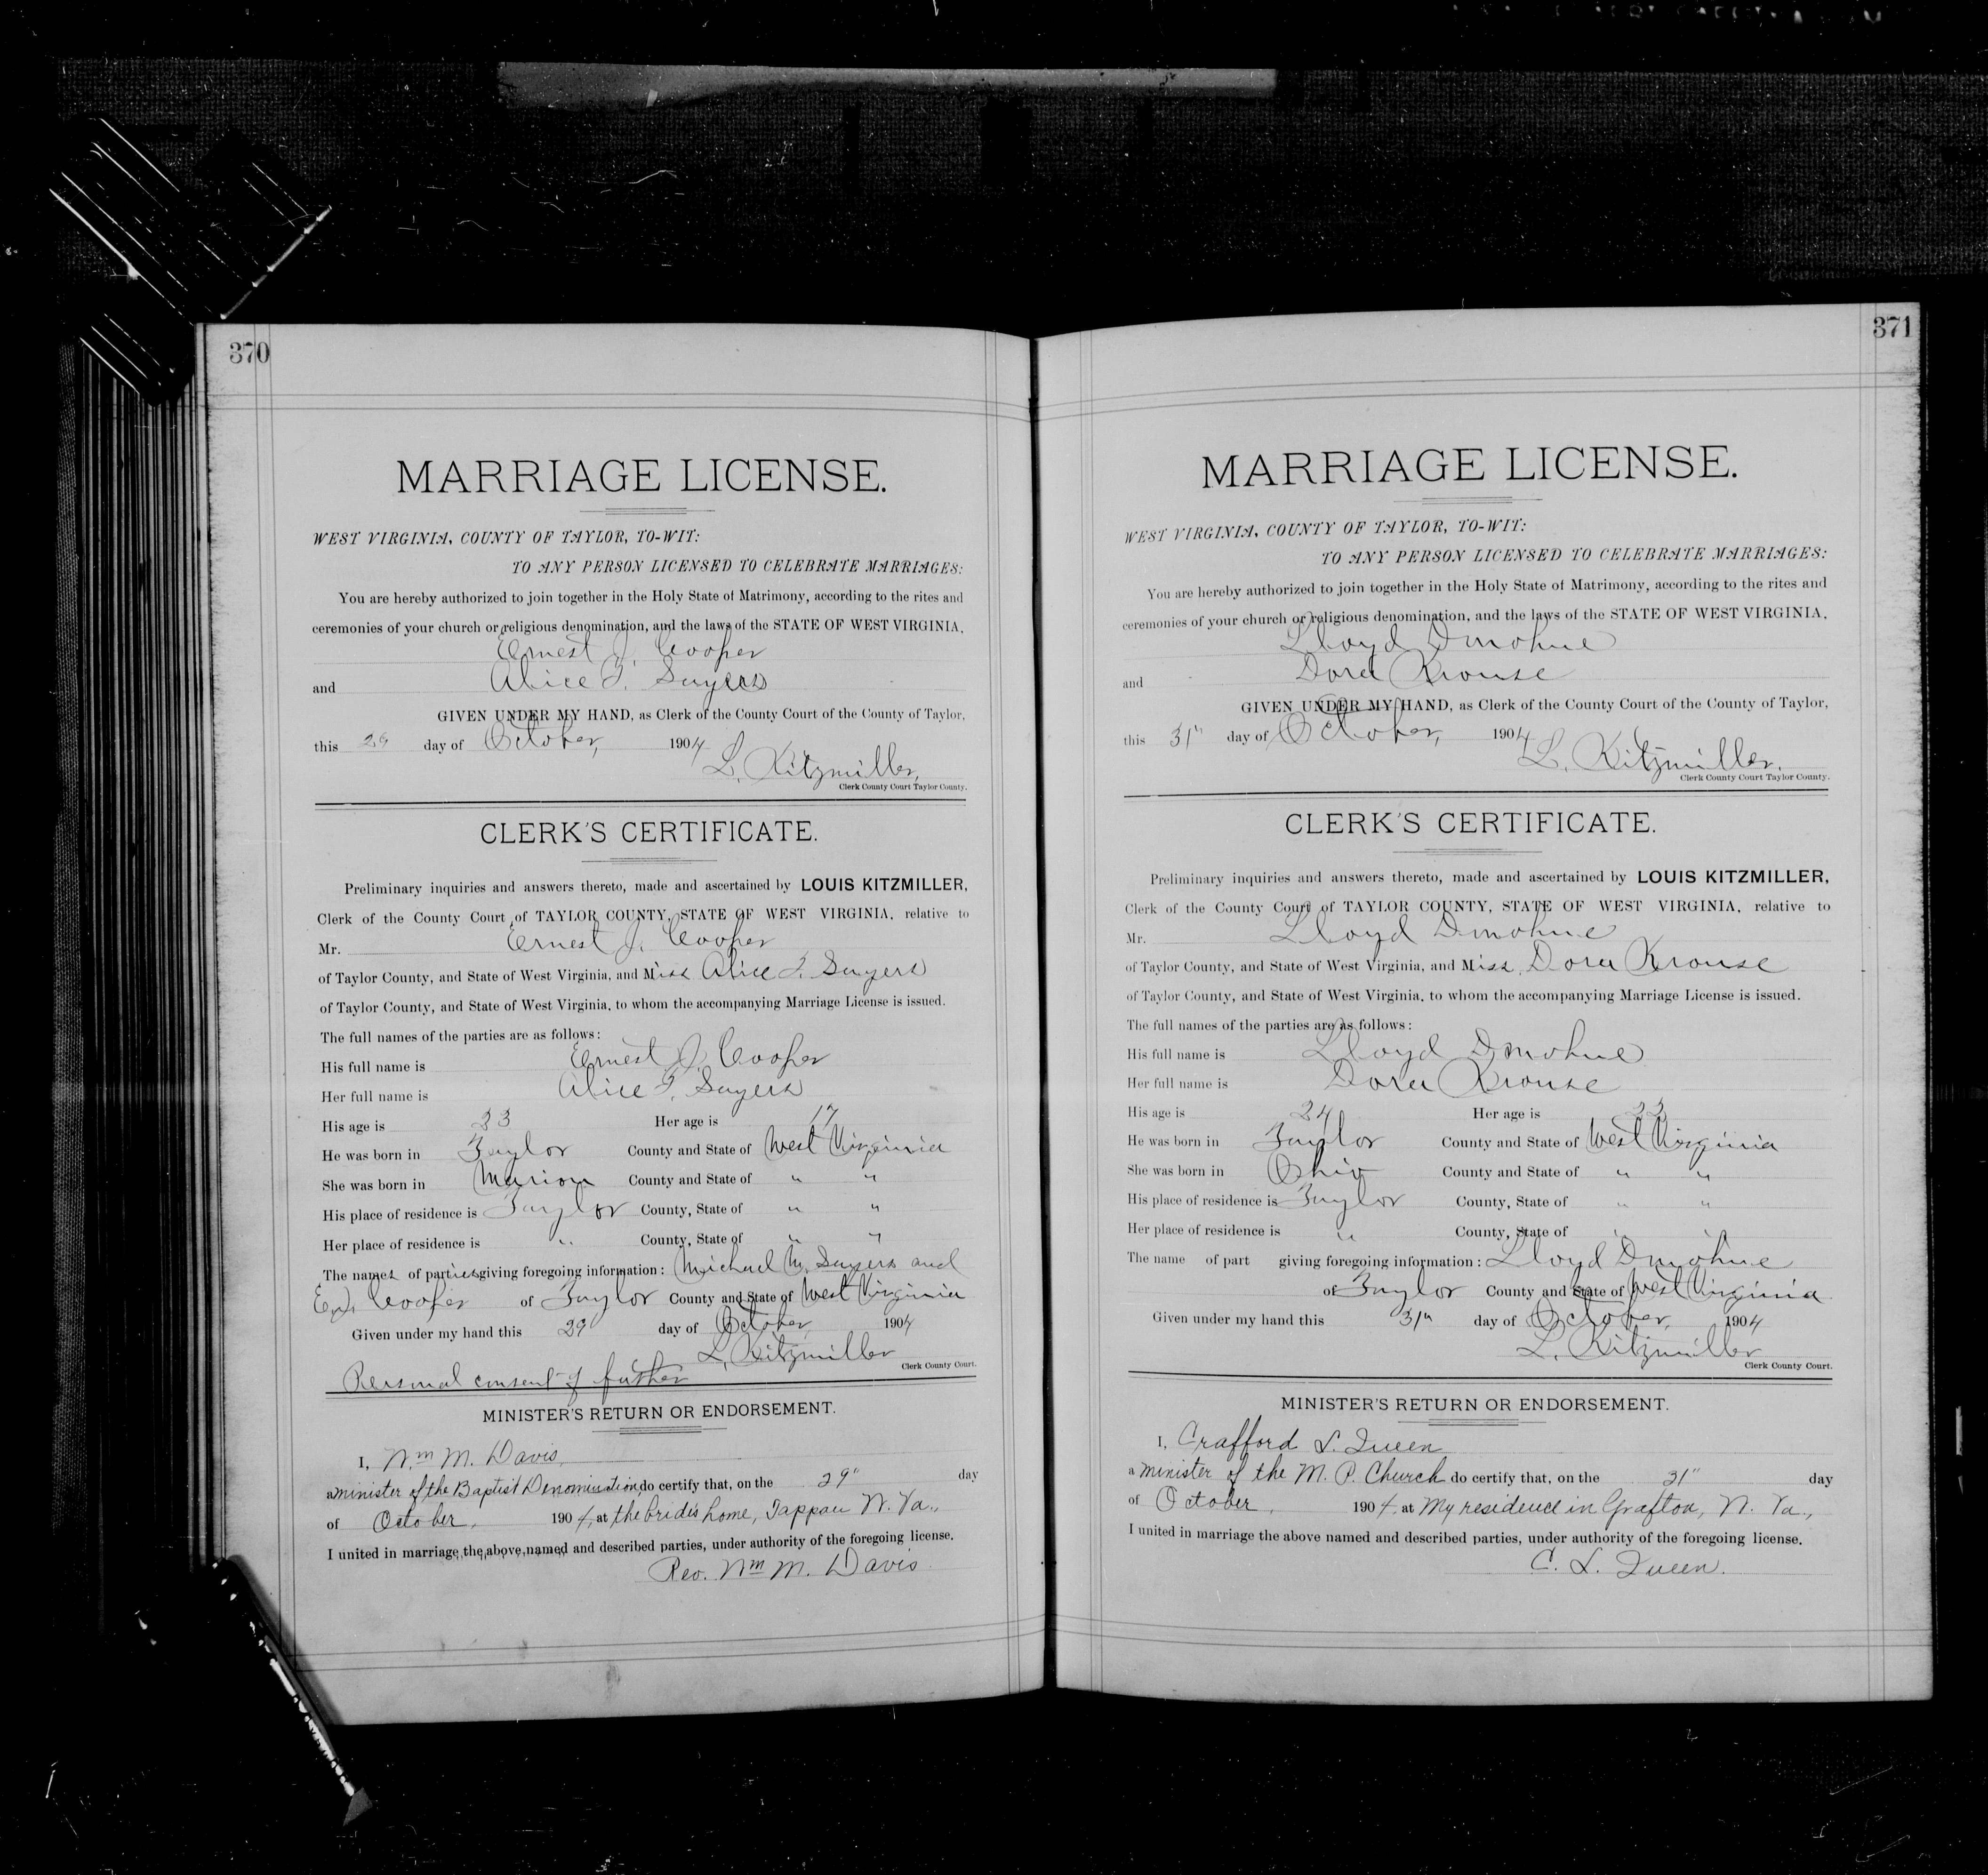 370
MARRIAGE LICENSE.
WEST VIRGINIA, COUNTY OF TAYLOR, TO-WIT:
TO ANY PERSON LICENSED TO CELEBRATE MARRIAGES:
You are hereby authorized to join together in the Holy State of Matrimony, according to the rites and
ceremonies of your church or religious denomination, and the laws of the STATE OF WEST VIRGINIA,
Ernest J. Cooper
and Alice F. Sayers
GIVEN UNDER MY HAND, as Clerk of the County Court of the County of Taylor,
this 29 day of October, 1904
L. Kitzmiller,
Clerk County Court Taylor County.
CLERK'S CERTIFICATE.
Preliminary inquiries and answers thereto, made and ascertained by LOUIS KITZMILLER,
Clerk of the County Court of TAYLOR COUNTY, STATE OF WEST VIRGINIA, relative to
Mr. Ernest J. Cooper
of Taylor County, and State of West Virginia, and Miss Alice F. Sayers
of Taylor County, and State of West Virginia, to whom the accompanying Marriage License is issued.
The full names of the parties are as follows:
His full name is Ernest J. Cooper
Her full name is Alice F. Sayers
His age is 23 Her age is 17
He was born in Taylor County and State of West Virginia
She was born in Marion County and State of " "
His place of residence is Taylor County, State of " "
Her place of residence is " County, State of " "
The names of parties giving foregoing information: Michael M. Sayers and
E.J. Cooper of Taylor County and State of West Virginia
Given under my hand this 29 day of October, 1904
L. Kitzmiller
Clerk County Court.
Personal consent of father
MINISTER'S RETURN OR ENDORSEMENT.
I, Wm M. Davis,
a minister of the Baptist Denomination, do certify that, on the 29" day
of October, 1904, at the bride's home, Tappan W. Va.,
I united in marriage the above named and described parties, under authority of the foregoing license.
Rev. Wm M. Davis
371
MARRIAGE LICENSE.
WEST VIRGINIA, COUNTY OF TAYLOR, TO-WIT:
TO ANY PERSON LICENSED TO CELEBRATE MARRIAGES:
You are hereby authorized to join together in the Holy State of Matrimony, according to the rites and
ceremonies of your church or religious denomination, and the laws of the STATE OF WEST VIRGINIA,
Lloyd Donohue
and Dora Krouse
GIVEN UNDER MY HAND, as Clerk of the County Court of the County of Taylor,
this 31" day of October, 1904
L. Kitzmiller.
Clerk County Court Taylor County.
CLERK'S CERTIFICATE.
Preliminary inquiries and answers thereto, made and ascertained by LOUIS KITZMILLER,
Clerk of the County Court of TAYLOR COUNTY, STATE OF WEST VIRGINIA, relative to
Mr. Lloyd Donohue
of Taylor County, and State of West Virginia, and Miss Dora Krouse
of Taylor County, and State of West Virginia, to whom the accompanying Marriage License is issued.
The full names of the parties are as follows:
His full name is Lloyd Donohue
Her full name is Dora Krouse
His age is 24 Her age is 22
He was born in Taylor County and State of West Virginia
She was born in Ohio County and State of " "
His place of residence is Taylor County, State of " "
Her place of residence is " County, State of " "
The name of part giving foregoing information: Lloyd Donohue
of Taylor County and State of West Virginia
Given under my hand this 31" day of October, 1904
L. Kitzmiller
Clerk County Court.
MINISTER'S RETURN OR ENDORSEMENT.
I, Crafford L. Queen
a minister of the M. P. Church do certify that, on the 31" day
of October, 1904, at My residence in Grafton, W. Va.,
I united in marriage the above named and described parties, under authority of the foregoing license.
C. L. Queen.